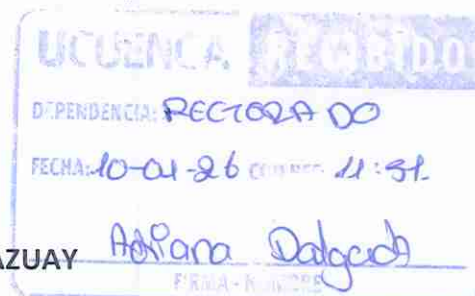 UCUENCA RECIBIDO
DEPENDENCIA: RECTORADO
FECHA: 10-01-26 11:51.
AZUAY Adriana Dalgado
FIRMA - NOMBRE